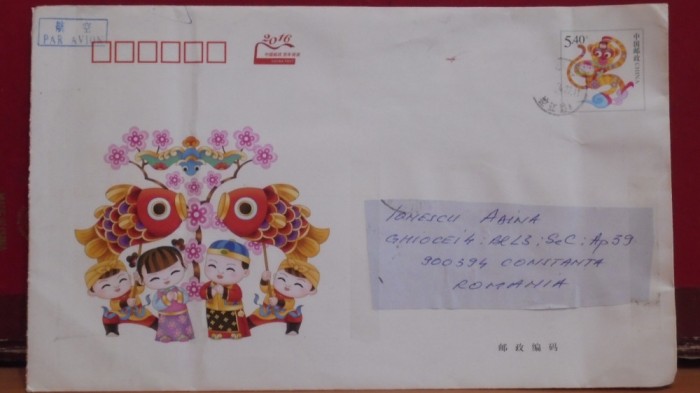 航空
PAR AVION
2016
5.40元
中国邮政
CHINA
IONESCU AAINA
GHIOCEI 4; BL L3; SC C; Ap 59
900394 CONSTANTA
ROMANIA
邮政编码